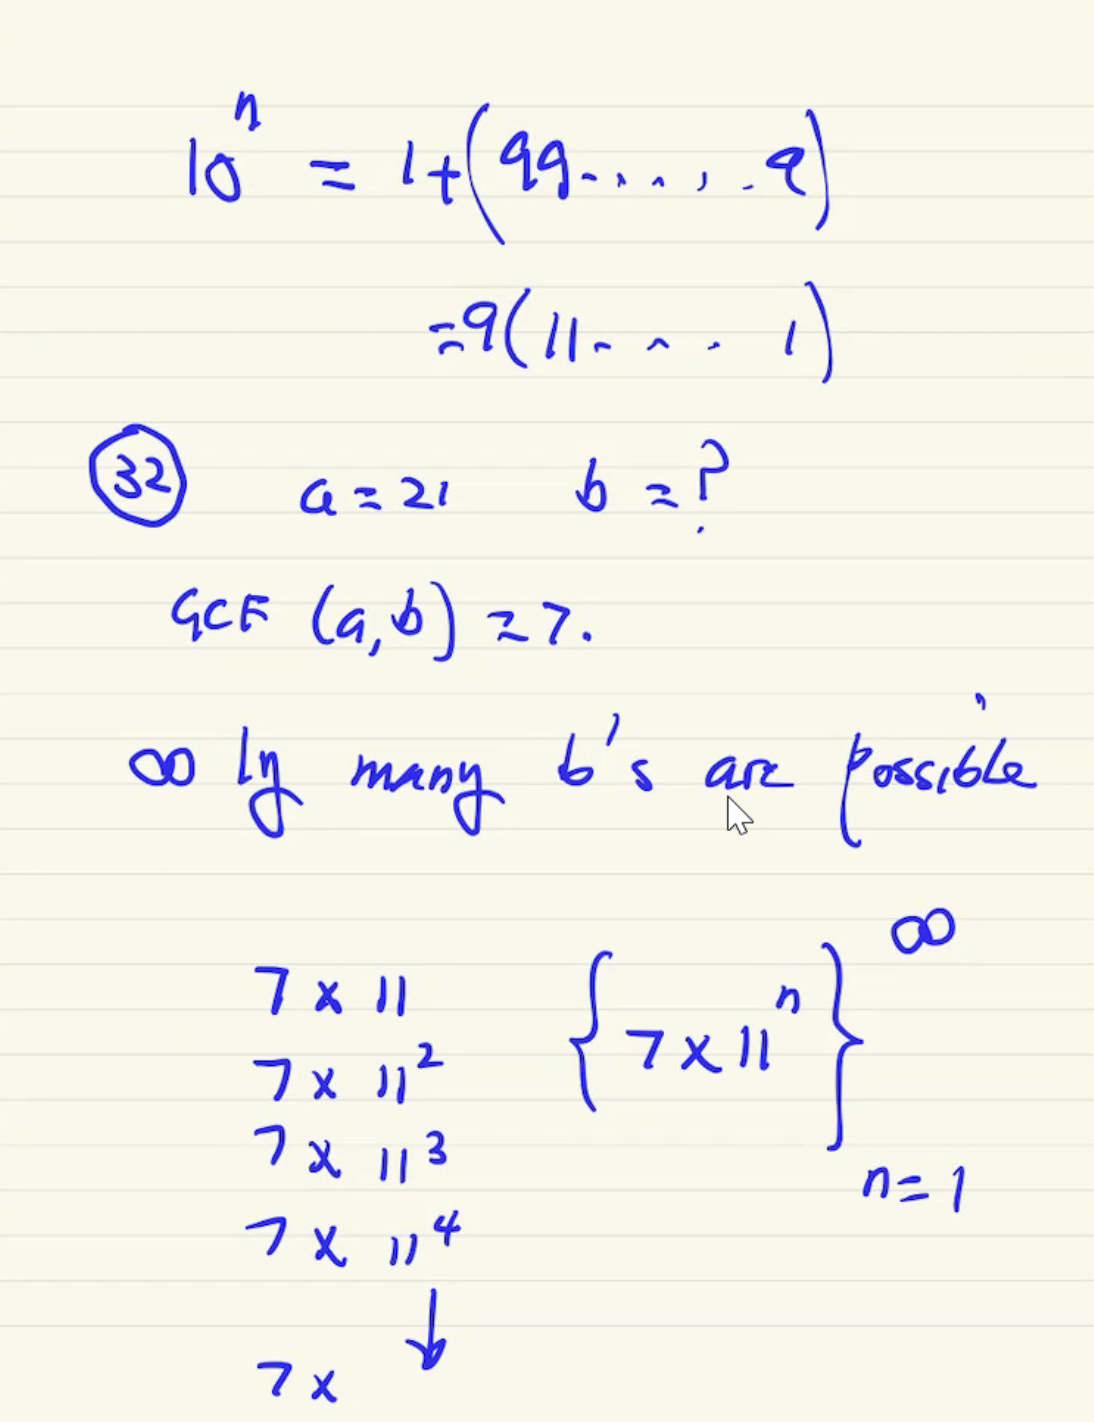 10^n = 1+(99.....9)
=9(11- - . 1)
32 a = 21 b = ?
GCF (a,b) = 7.
∞ ly many b's are possible
7 x 11 {7 x 11^n}^∞ n=1
7 x 11^2
7 x 11^3
7 x 11^4
↓
7 x